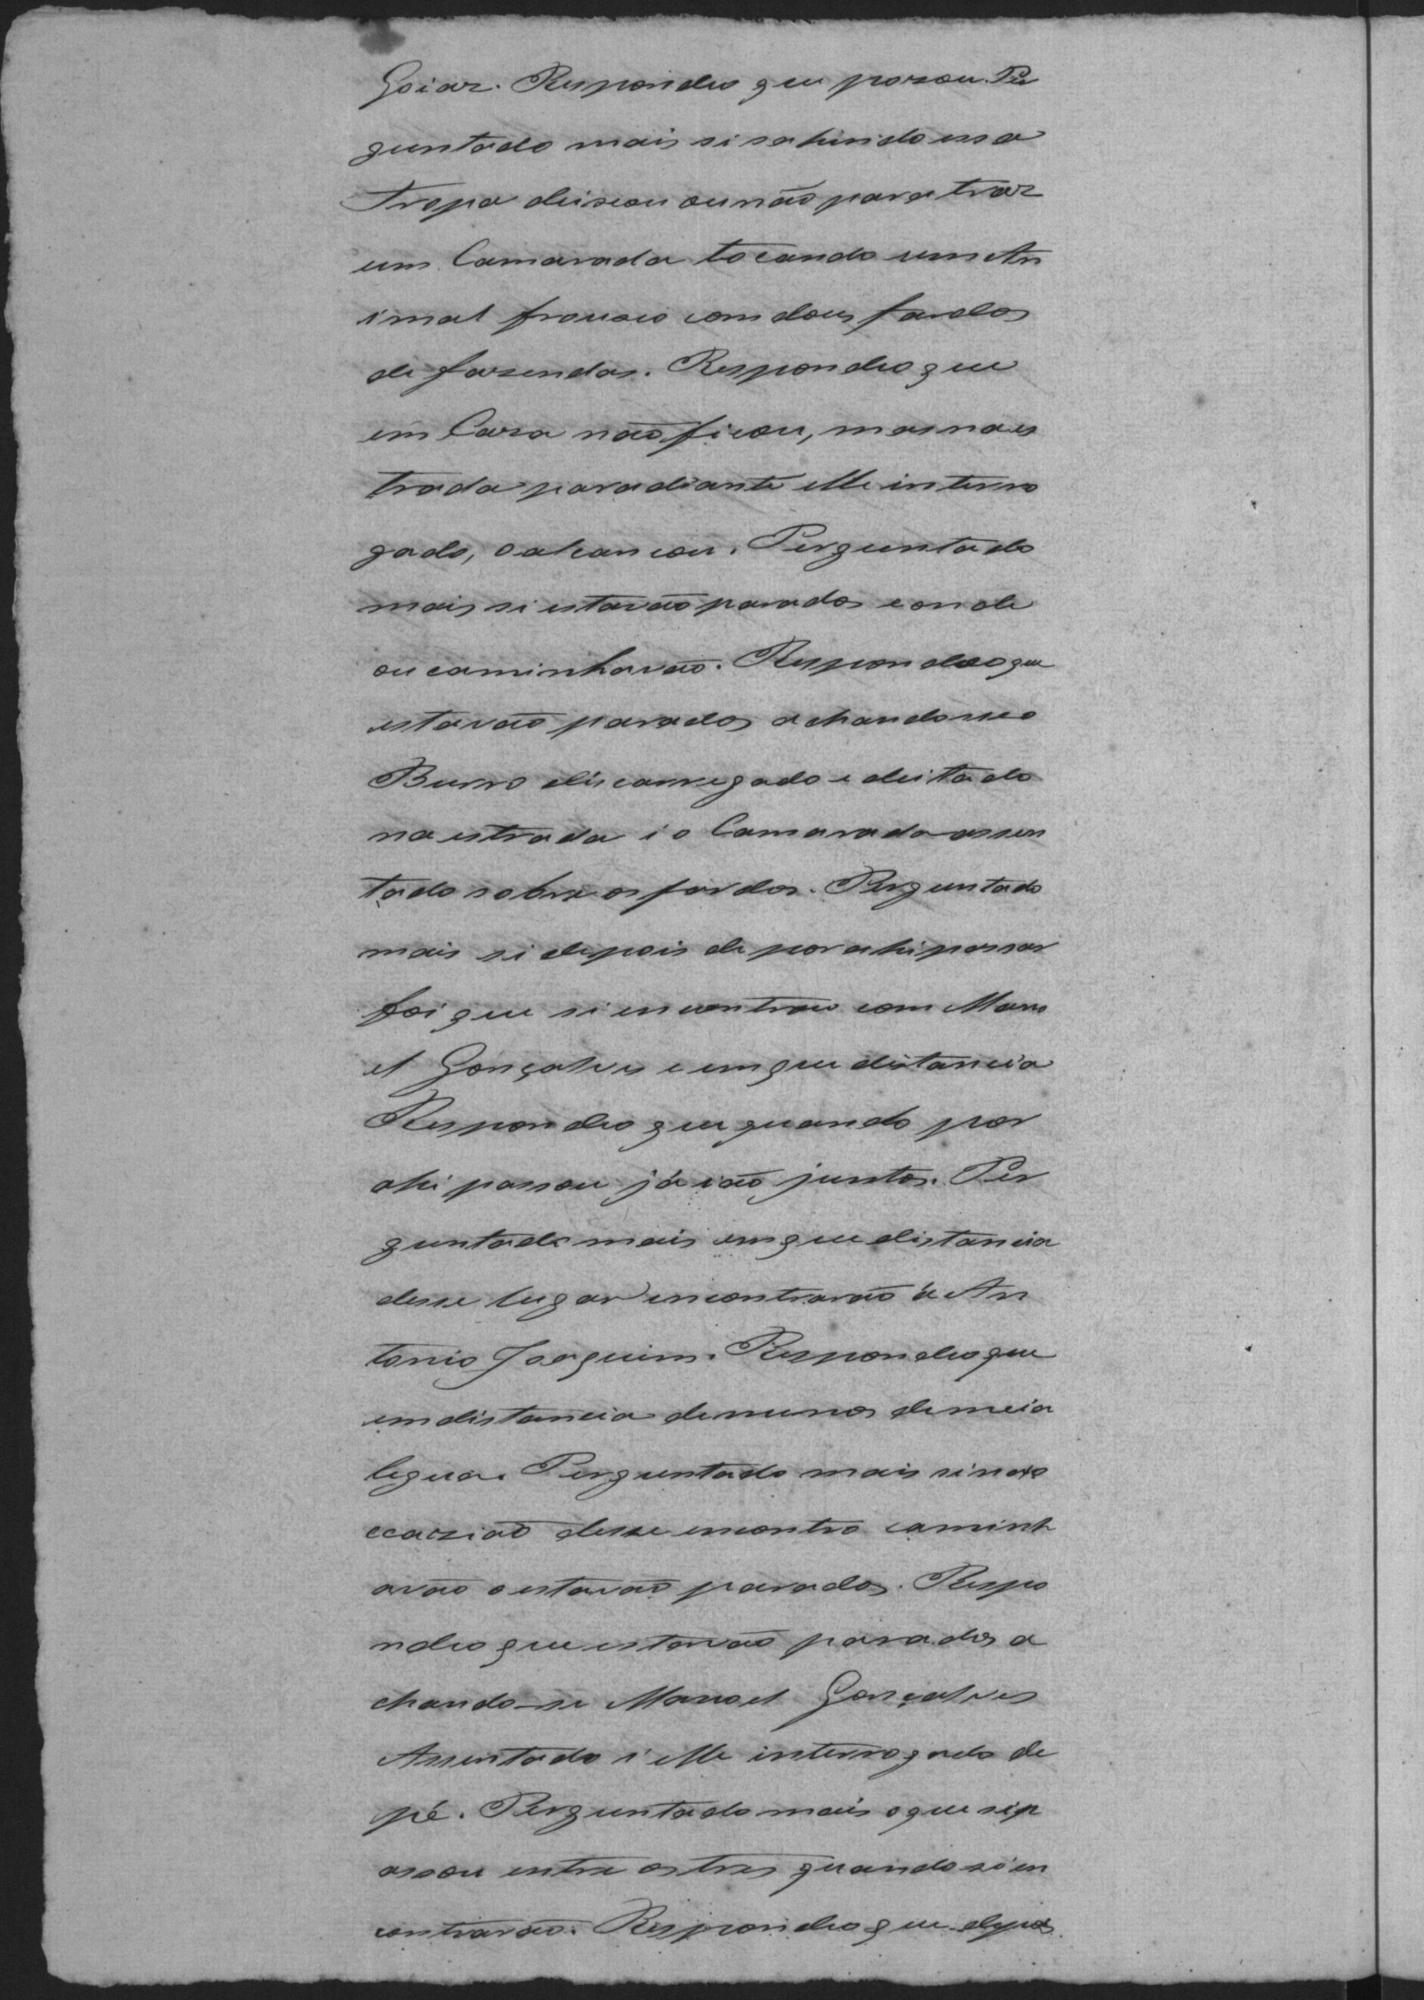 Goiaz. Respondeo que pozou. Per
guntado mais si sahindo essa
Tropa deixou ou não para traz
um Camarada tocando um An
imal frouxo com dous fardos
de fazendas. Respondeo que
em Caza não ficou, mas na es
trada para diante elle interro
gado, o alcançou. Perguntado
mais si estavão parados e onde
ou caminhavão. Respondeo que
estavão parados achandosse o
Burro discarregado e deitado
na estrada i o Camarada assen
tado sobre os fardos. Perguntado
mais si depois de por ahi passar
foi que si encontrou com Mano
el Gonçalves e em que distancia
Respondeo que quando por
ahi passou já ião juntos. Per
guntado mais em que distancia
desse lugar encontrarão á An
tonio Joaquim. Respondeo que
em distancia de menos de meia
legua. Perguntado mais si na o
ccazião desse encontro caminh
avão o estavão parados. Respo
ndeo que estavão parados a
chando-se Manoel Gonçalves
Assentado i elle interrogado de
pé. Perguntado mais o que si p
assou entre os tres quando si en
contrarão. Respondeo que depois